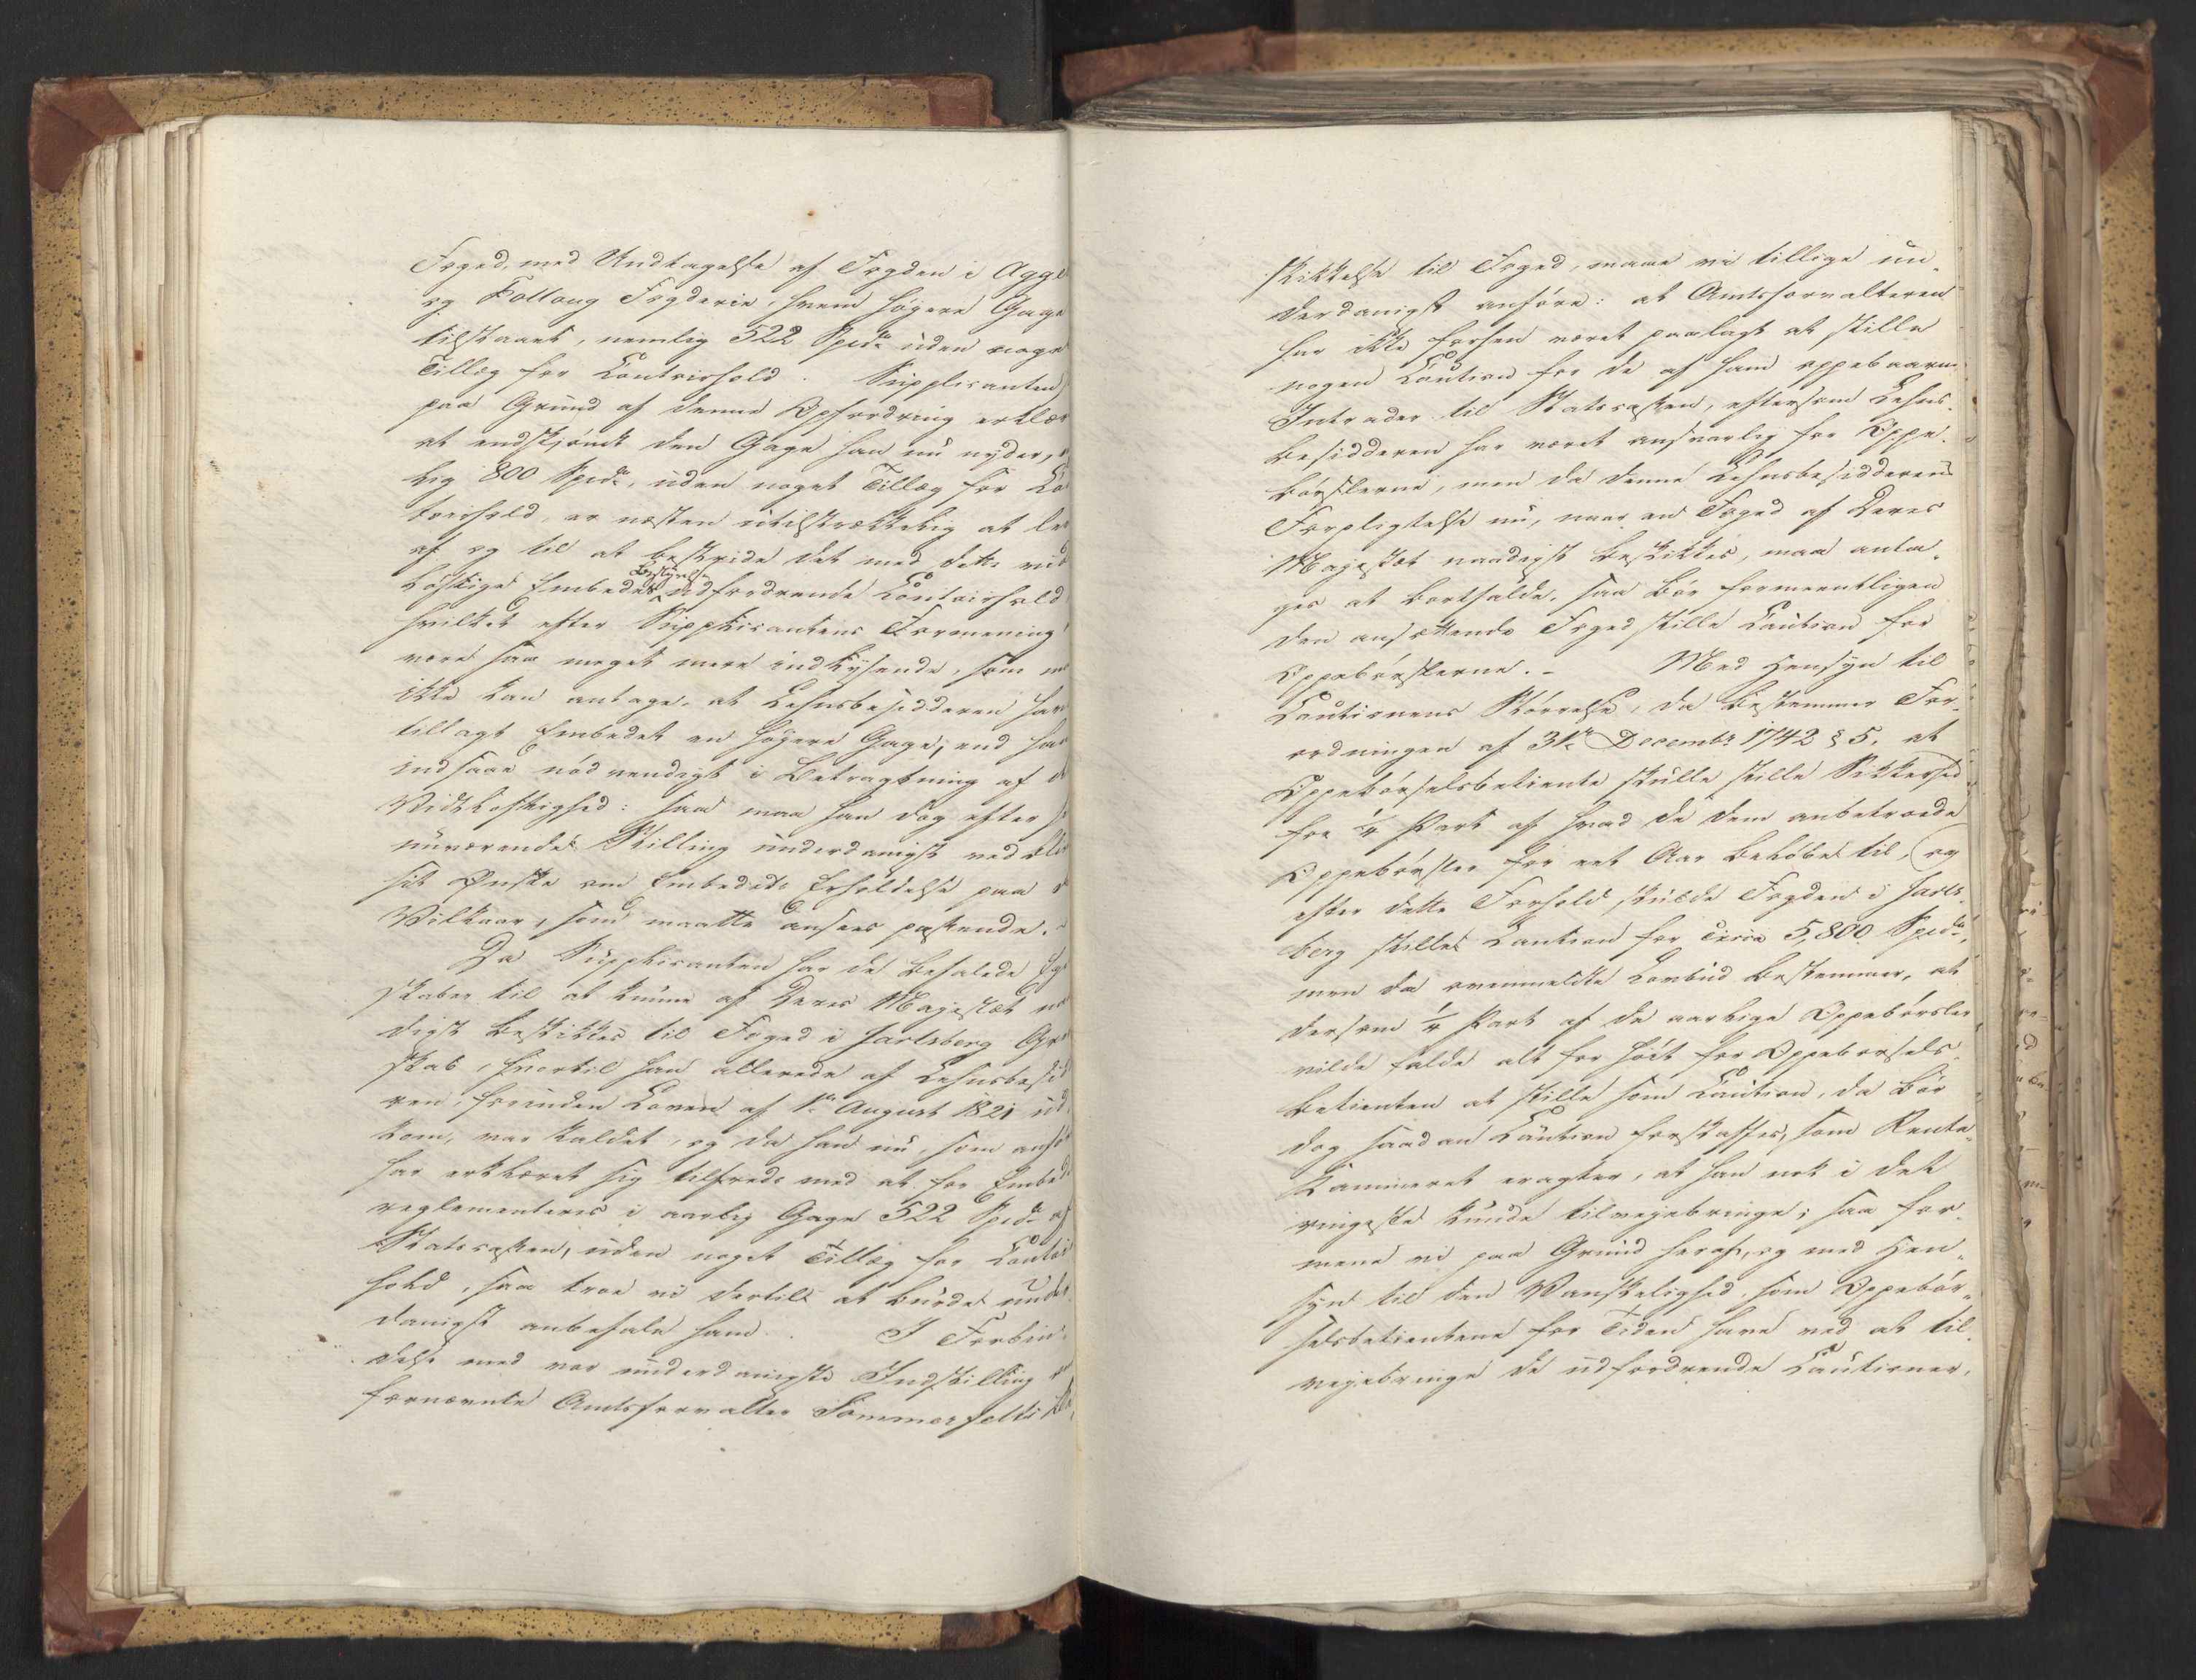 Foged, med Undtagelse af Fogden i Agge
og Follaug Fogderie, hvem høgere Gage
tilstaaes, nemlig 522 Spd. uden noget
Tillæg for Contoirhold. Supplicanten
paa Grund af denne Opfordring erklær
at endskjøndt den Gage han nu nyder,
lig 800 Spd., uden noget Tillæg for Co
toirhold, er næsten utilstrækkelig at le
af og til at bestride det med dette vid
løftige Embedes Bestyrelse udfordrende Contoirhold
hvilket efter Supplicantens Formening
være saa meget mere indlysende, som ma
ikke kan antage, at Lehnsbesidderen har
tillagt Embedet en høgere Gage, end han
indsaae nødvendigt i Betragtning af de
Vidtløftighed: saa maa han dog efter si
nuværende Stilling underdanigst vedbliv
sit Ønske om Embedets Erholdelse paa d
Vilkaar, som maatte ansees passende. -
Da Supplicanten har de befalede Ege
skaber til at kunne af Deres Majestæt naa
digst beskikkes til Foged i Jarlsberg Gre
skab, hvortil han allerede af Lehnsbesid
ren, forinden Loven af 1ste August 1821 ud
kom, var kaldet, og da han nu, som anfø
har erklæret sig tilfreds med at for Embede
reglementeres i aarlig Gage 522 Spd. af
Statscassen, uden noget Tillæg for Contoir
hold, saa troe vi dertil at burde under
danigst anbefale ham. I Forbin-
delse med vor underdanigste Indstilling
fornævnte Amtsforvalter Sommerfeldts
skikkelse til Foged, maae vi tillige un-
derdanigst anføre: at Amtsforvalteren
har ikke forhen været paalagt at stille
nogen Caution for de af ham oppebaarne
Intrader til Statscassen, eftersom Lehns-
besidderen har været ansvarlig for Oppe-
børslerne, men da denne Lehnsbesidderens
Forpligtelse nu, naar en Foged af Deres
Majestæt naadigst beskikkes, maa anta-
ges at bortfalde, saa bør formeentligen
den ansættende Foged stille Caution for
Oppebørslerne. - Med Hensyn til
Cautionens Størrelse, da bestemmer For-
ordningen af 31te Decembr 1742 § 5, at
Oppebørselsbetiente skulle stille Sikkerhed
for 1/4 Part af hvad de dem anbetroede
Oppebørsler for eet Aar beløbe til, (og
efter dette Forhold skulde Fogden i Jarls-
berg stille Caution for circa 5,800 Spd.,
men da ovenmeldte Lovbud bestemmer, at
dersom 1/4 Part af de aarlige Oppebørsler
vilde falde alt for høit for Oppebørsels-
betienten at stille som Caution, da bør
dog saadan Caution forskaffes, som Rente-
kammeret eragter, at han nok i det
ringeste kunde tilvejebringe; saa for-
mene vi paa Grund heraf, og med Hen-
syn til den Vanskelighed, som Oppebør-
selsbetientene for Tiden have ved at til-
vejebringe de udfordrende Cautioner,